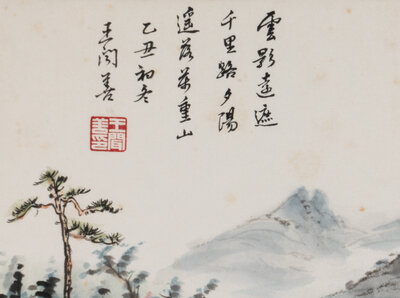 雲影遠遮
千里路夕陽
遙落萬重山
乙丑初冬
王聞善
王聞善印